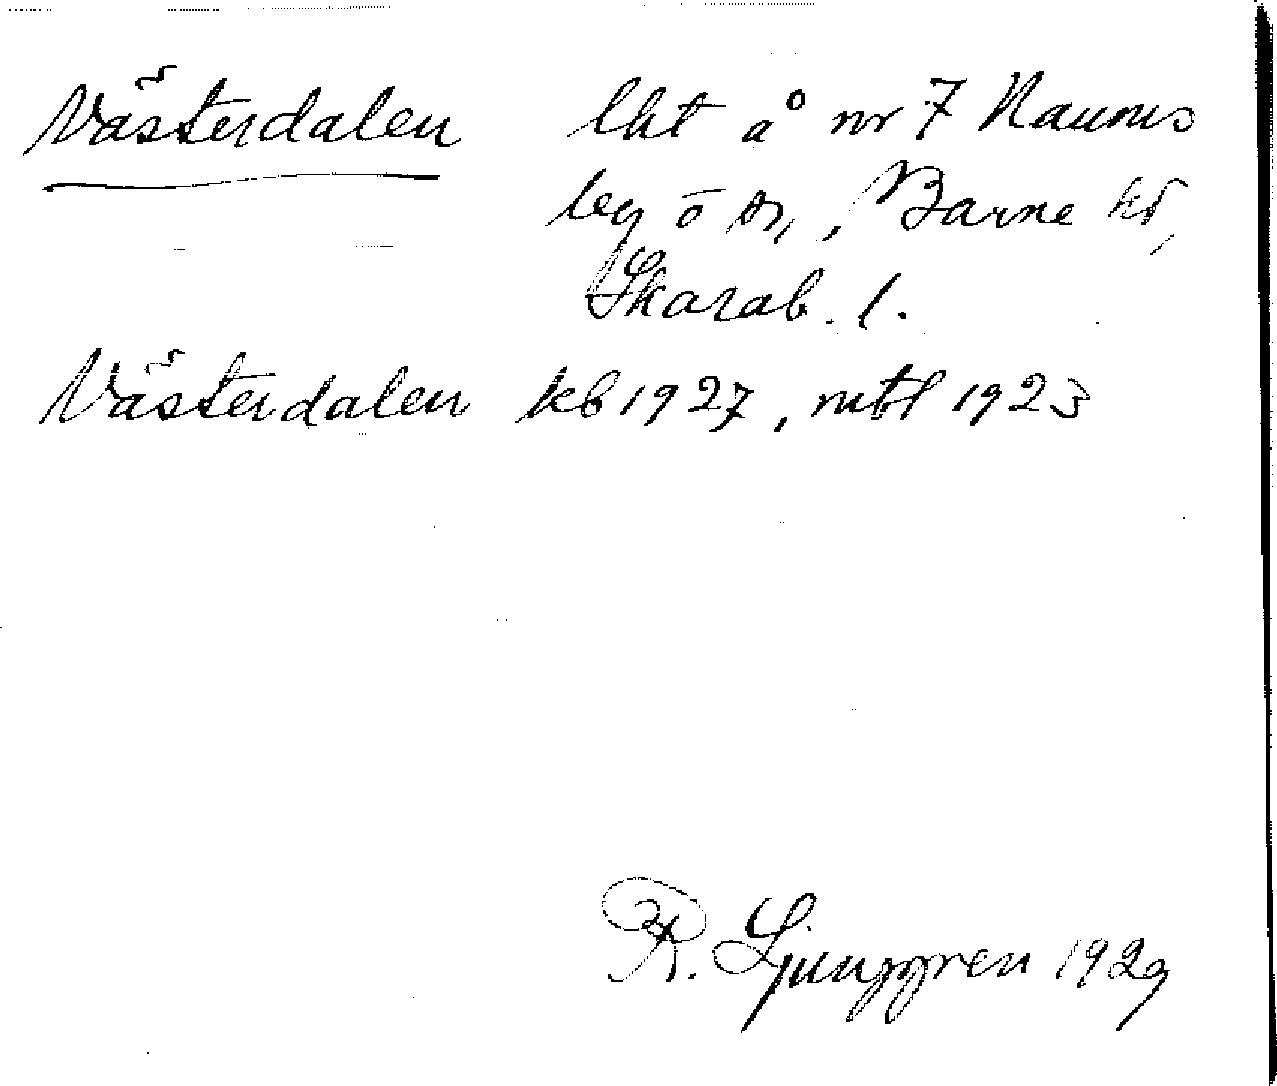 Västerdalen lht å nr 7 Naums
leg ö sn, Barne hd,
Skarab. l.
Västerdalen kb 1927, mtl 1923
R. Ljunggren 1929